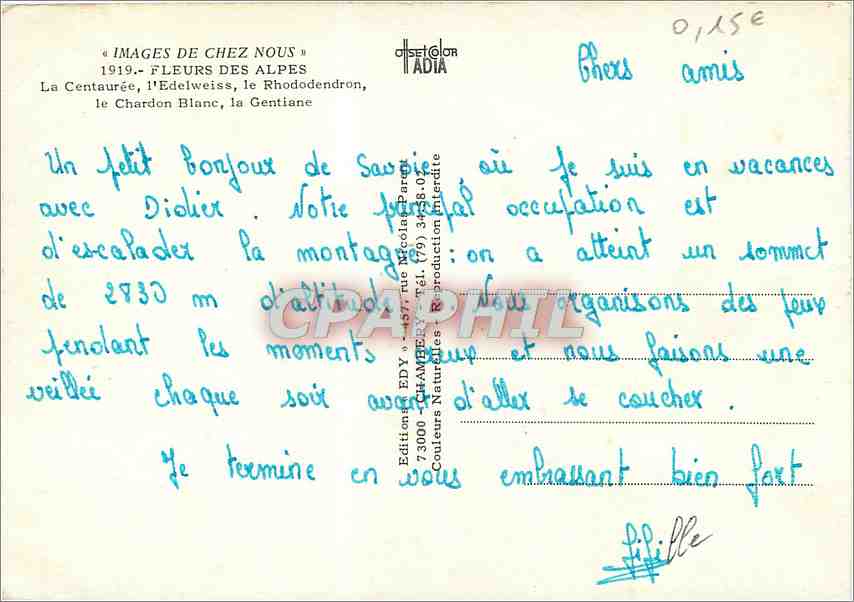 0,15€
« IMAGES DE CHEZ NOUS »
1919.- FLEURS DES ALPES
La Centaurée, l'Edelweiss, le Rhododendron,
le Chardon Blanc, la Gentiane
OffsetColor
TADIA
Chers amis
Un petit bonjour de Savoie, où je suis en vacances
avec Didier. Notre principal occupation est
d'escalader la montagne : on a atteint un sommet
de 2830 m d'altitude. Nous organisons des jeux
pendant les moments creux et nous faisons une
veillée chaque soir avant d'aller se coucher.
Je termine en vous embrassant bien fort
fifille
Editions « EDY » - 457, rue Nicolas Parent
73000 - CHAMBERY - Tél. (79) 34-38-07
Couleurs Naturelles - Reproduction Interdite
CPAPHIL